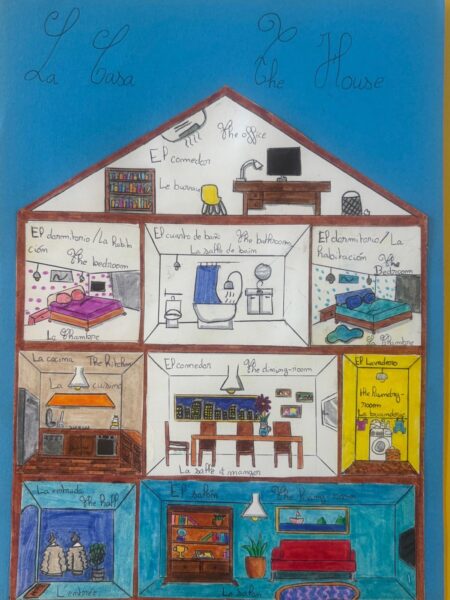 La Casa The House
The office
El comedor
Le bureau
El dormitorio/La habita
ción
The bedroom
La chambre
El cuarto de baño The bathroom
La salle de bain
El dormitorio/La
habitación The
Bedroom
La chambre
La cocina The Kitchen
La cuisine
El comedor The dining-room
La salle à manger
El Lavadero
the laundry-
room
La buanderie
La entrada
The hall
L'entrée
El salón The living room
Le salon